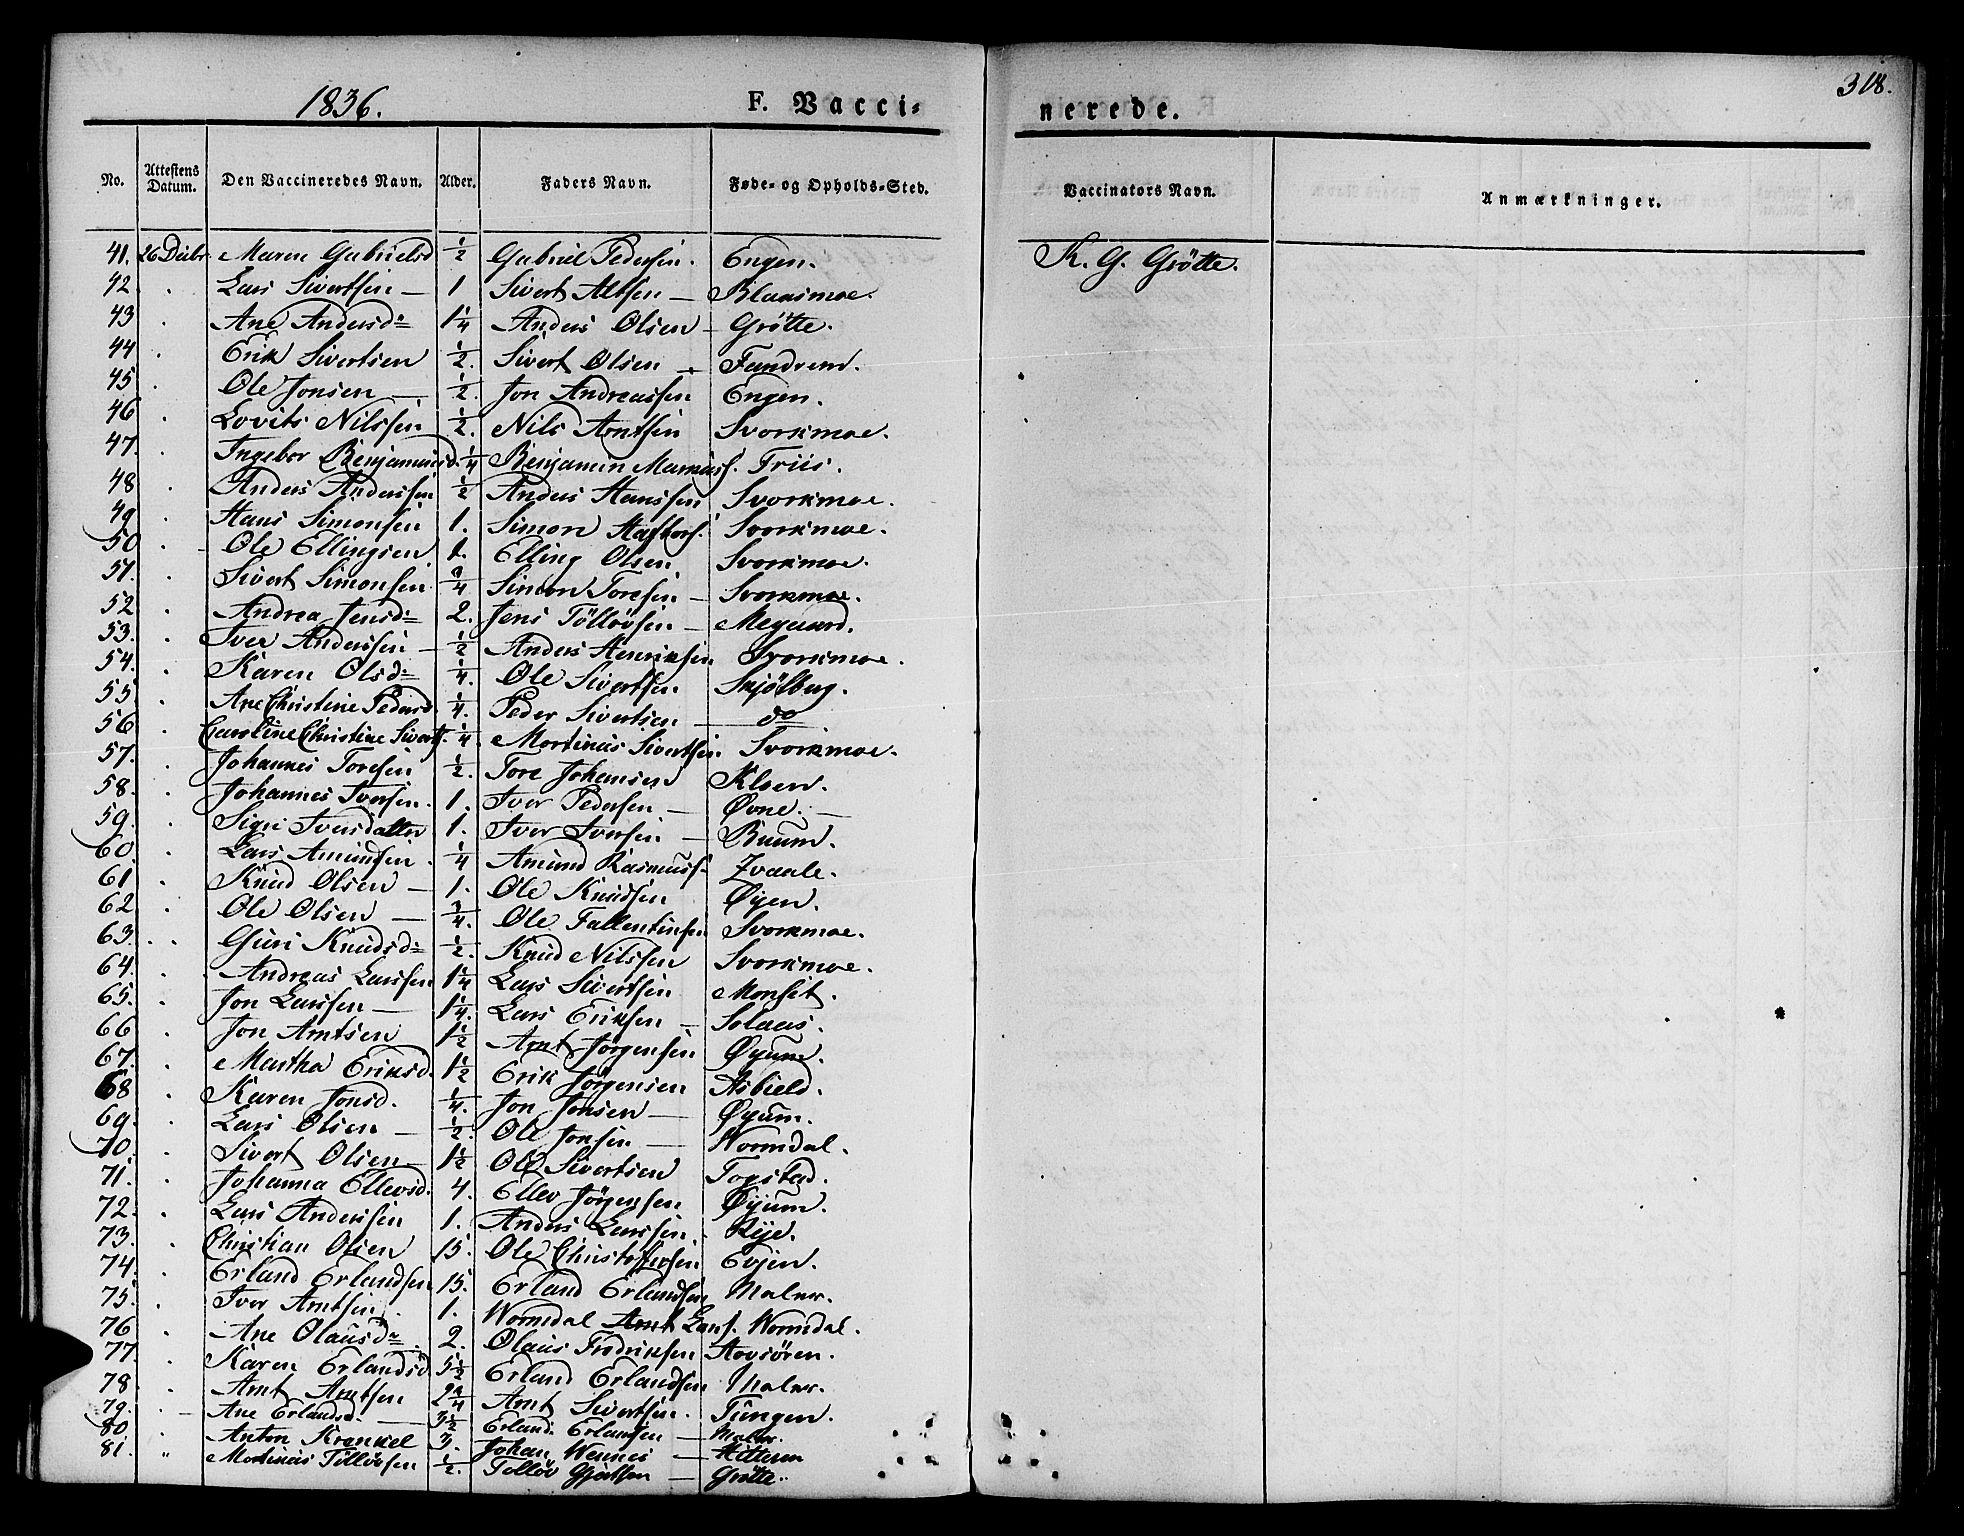 1836. F. Vacci- nerede. 318.
No. Attestens Datum. Den Vaccineredes Navn. Alder. Faders Navn. Føde- og Opholds-Sted. Vaccinators Navn. Anmærkninger.
41. 26 Decbr. Maren Gabrielsd 1/2 Gabriel Pedersen. Engen. K. G. Grötte.
42. . Lars Sivertsen — 1 Sivert Altsen — Blaasmoe.
43 . Ane Andersd= 1 1/4 Anders Olsen — Grötte.
44 . Erik Sivertsen 1/2 Sivert Olsen — Fandrem.
45. . Ole Jonsen — 1/2 Jon Andreassen Engen.
46 . Lovits Nilssen 1/2. Nils Arntsen Svorkmoe.
47. . Ingebor Benjaminsd. 1/4 Benjamin Marcuss. Friis.
48 . Anders Anderssen 1/2 Anders Hanssen Svorkmoe.
49 . Hans Simonsen 1. Simon Haftors. Svorkmoe.
50 . Ole Ellingsen 1. Elling Olsen Svorkmoe.
51. . Sivert Simonsen 3/4 Simon Toresen — Svorkmoe.
52 . Andrea Jensd= 2. Jens Töllövsen — Megaard.
53. . Iver Anderssen — 1/2 Anders Henriksen Svorkmoe.
54. . Karen Olsd= 1/4. Ole Sivertsen Skjölberg.
55. . Ane Christine Pedersd 1/4. Peder Sivertsen — do
56 . Caroline Christine Sivert. 1/4. Mortinus Sivertsen Svorkmoe.
57. . Johannes Toresen 1/2. Tore Johansen Kloen.
58. . Johannes Iversen. 1. Iver Pedersen — Øvne. —
59. . Sigri Iversdatter 1. Iver Iversen — Buum.
60 . Lars Amundsen. 1/4 Amund Rasmuss. Qvaale.
61. . Knud Olsen — 1. Ole Knudsen Øyen.
62 . Ole Olsen — 3/4. Ole Fallentinsen Svorkmoe.
63. . . Guri Knudsd= 1/2. Knud Nilssen Svorkmoe.
64. . Andreas Larssen 1 1/4 Lars Sivertsen Monset.
65. . Jon Larssen — 1 1/4. Lars Eriksen — Solaas.
66 . Jon Arntsen 1 1/2 Arnt Jörgensen Øyum.
67. . Martha Eriksd. 1 1/2 Erik Jörgensen Asbield.
68 . Karen Jonsd. 1/4. Jon Jonsen — Øyum.
69. . Lars Olsen — 1/2. Ole Jonsen — Wormdal.
70. . Sivert Olsen — 1 1/2 Ole Sivertsen Togstad.
71. . Johanna Ellevsd. 4. Ellev Jörgensen Øyum.
72. . Lars Anderssen 1. Anders Larssen. Rye.
73. . Christian Olsen 15. Ole Christoffersen Evjen.
74. . Erland Erlandsen 15. Erland Erlandsen Maler.
75. . Iver Arntsen. 1. Wormdal Arnt Lars. Wormdal.
76 . Ane Olausd= 2. Olaus Fredriksen Hovsören.
77. . Karen Erlandsd 5 1/2 Erland Erlandsen Maler.
78 . Arnt Arntsen 2 3/4 Arnt Sivertsen. Tungen.
79. — Ane Erlandsd. — 3 1/2 Erland Erlandsen — Maler.
80 . Anton Krenkel 3. Johan Wennes — Hitteren
81. " Mortinus Töllövsen 1/2. Töllöv Gjertsen — Grötte.